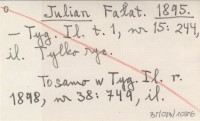 Julian Fałat. 1895.
– Tyg. Il. t. 1, nr 15: 244,
il. Tylko ryc.
To samo w Tyg. Il. r.
1898, nr 38: 749, il.